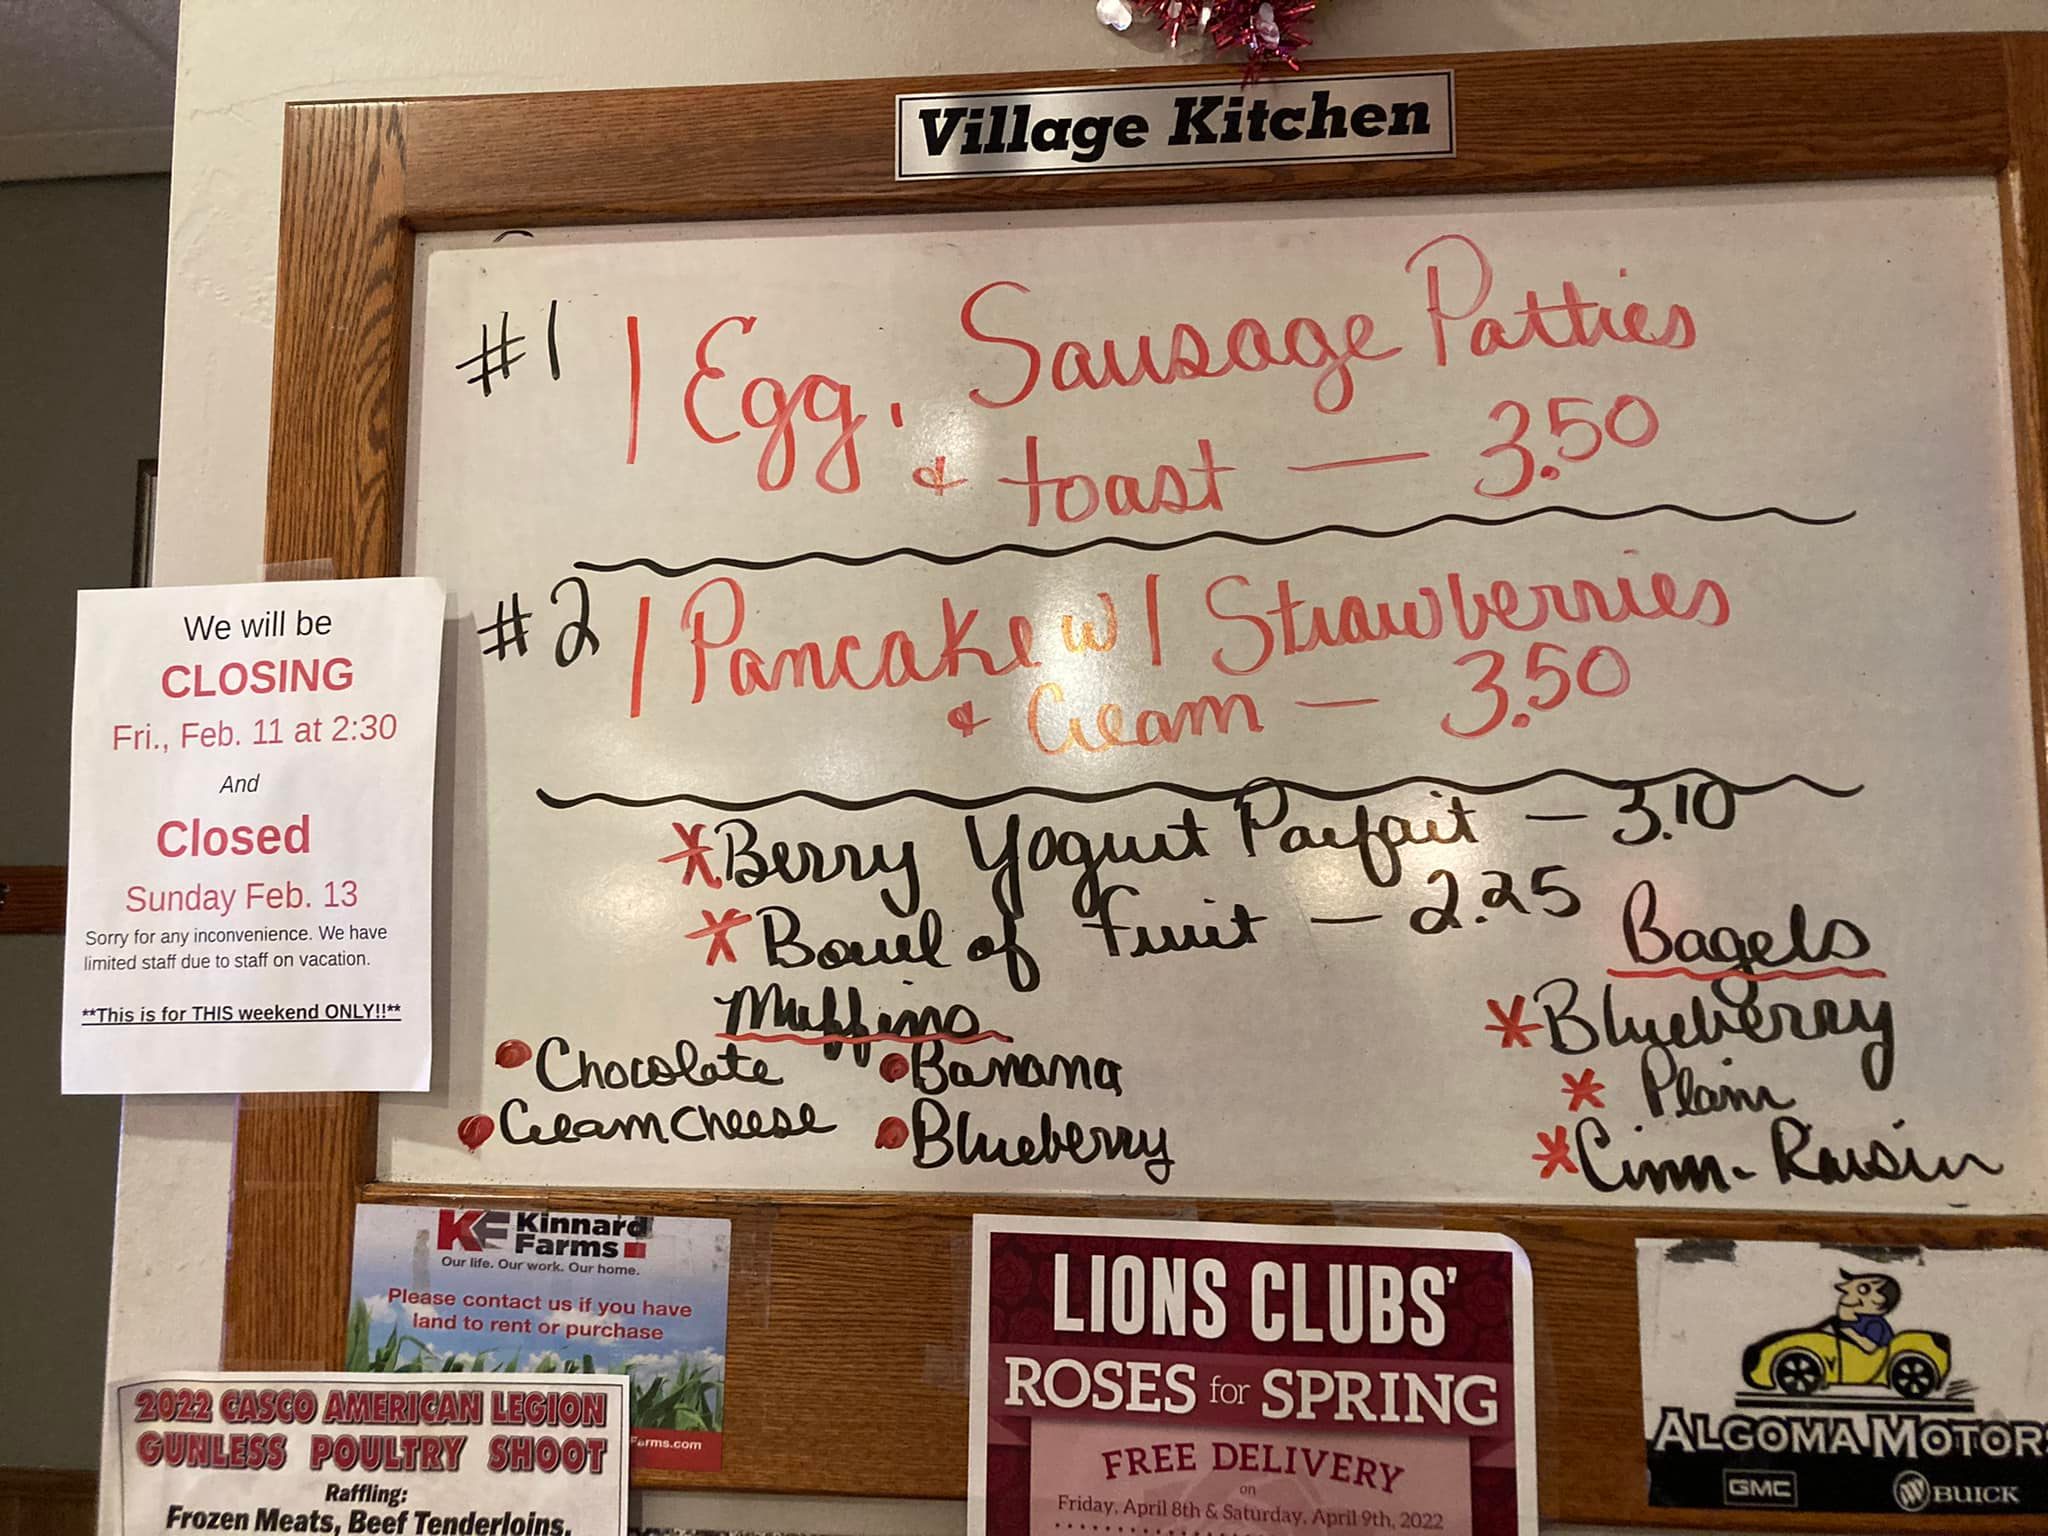 Village Kitchen
#1 1 Egg, Sausage Patties
& toast — 3.50
#2 1 Pancake w/ Strawberries
& Cream — 3.50
*Berry Yogurt Parfait — 3.10
*Bowl of Fruit — 2.25
Muffins
•Chocolate •Banana
•Cream Cheese •Blueberry
Bagels
*Blueberry
* Plain
*Cinn-Raisin
We will be
CLOSING
Fri., Feb. 11 at 2:30
And
Closed
Sunday Feb. 13
Sorry for any inconvenience. We have
limited staff due to staff on vacation.
**This is for THIS weekend ONLY!!**
KF Kinnard
Farms
Our life. Our work. Our home.
Please contact us if you have
land to rent or purchase
Farms.com
2022 CASCO AMERICAN LEGION
GUNLESS POULTRY SHOOT
Raffling:
Frozen Meats, Beef Tenderloins,
LIONS CLUBS'
ROSES for SPRING
FREE DELIVERY
on
Friday, April 8th & Saturday, April 9th, 2022
ALGOMA MOTORS
GMC BUICK